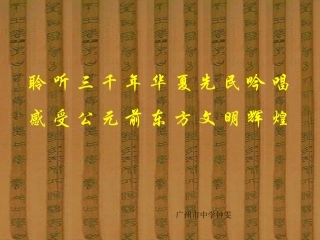 聆听三千年华夏先民吟唱
感受公元前东方文明辉煌
广州市中学钟雯